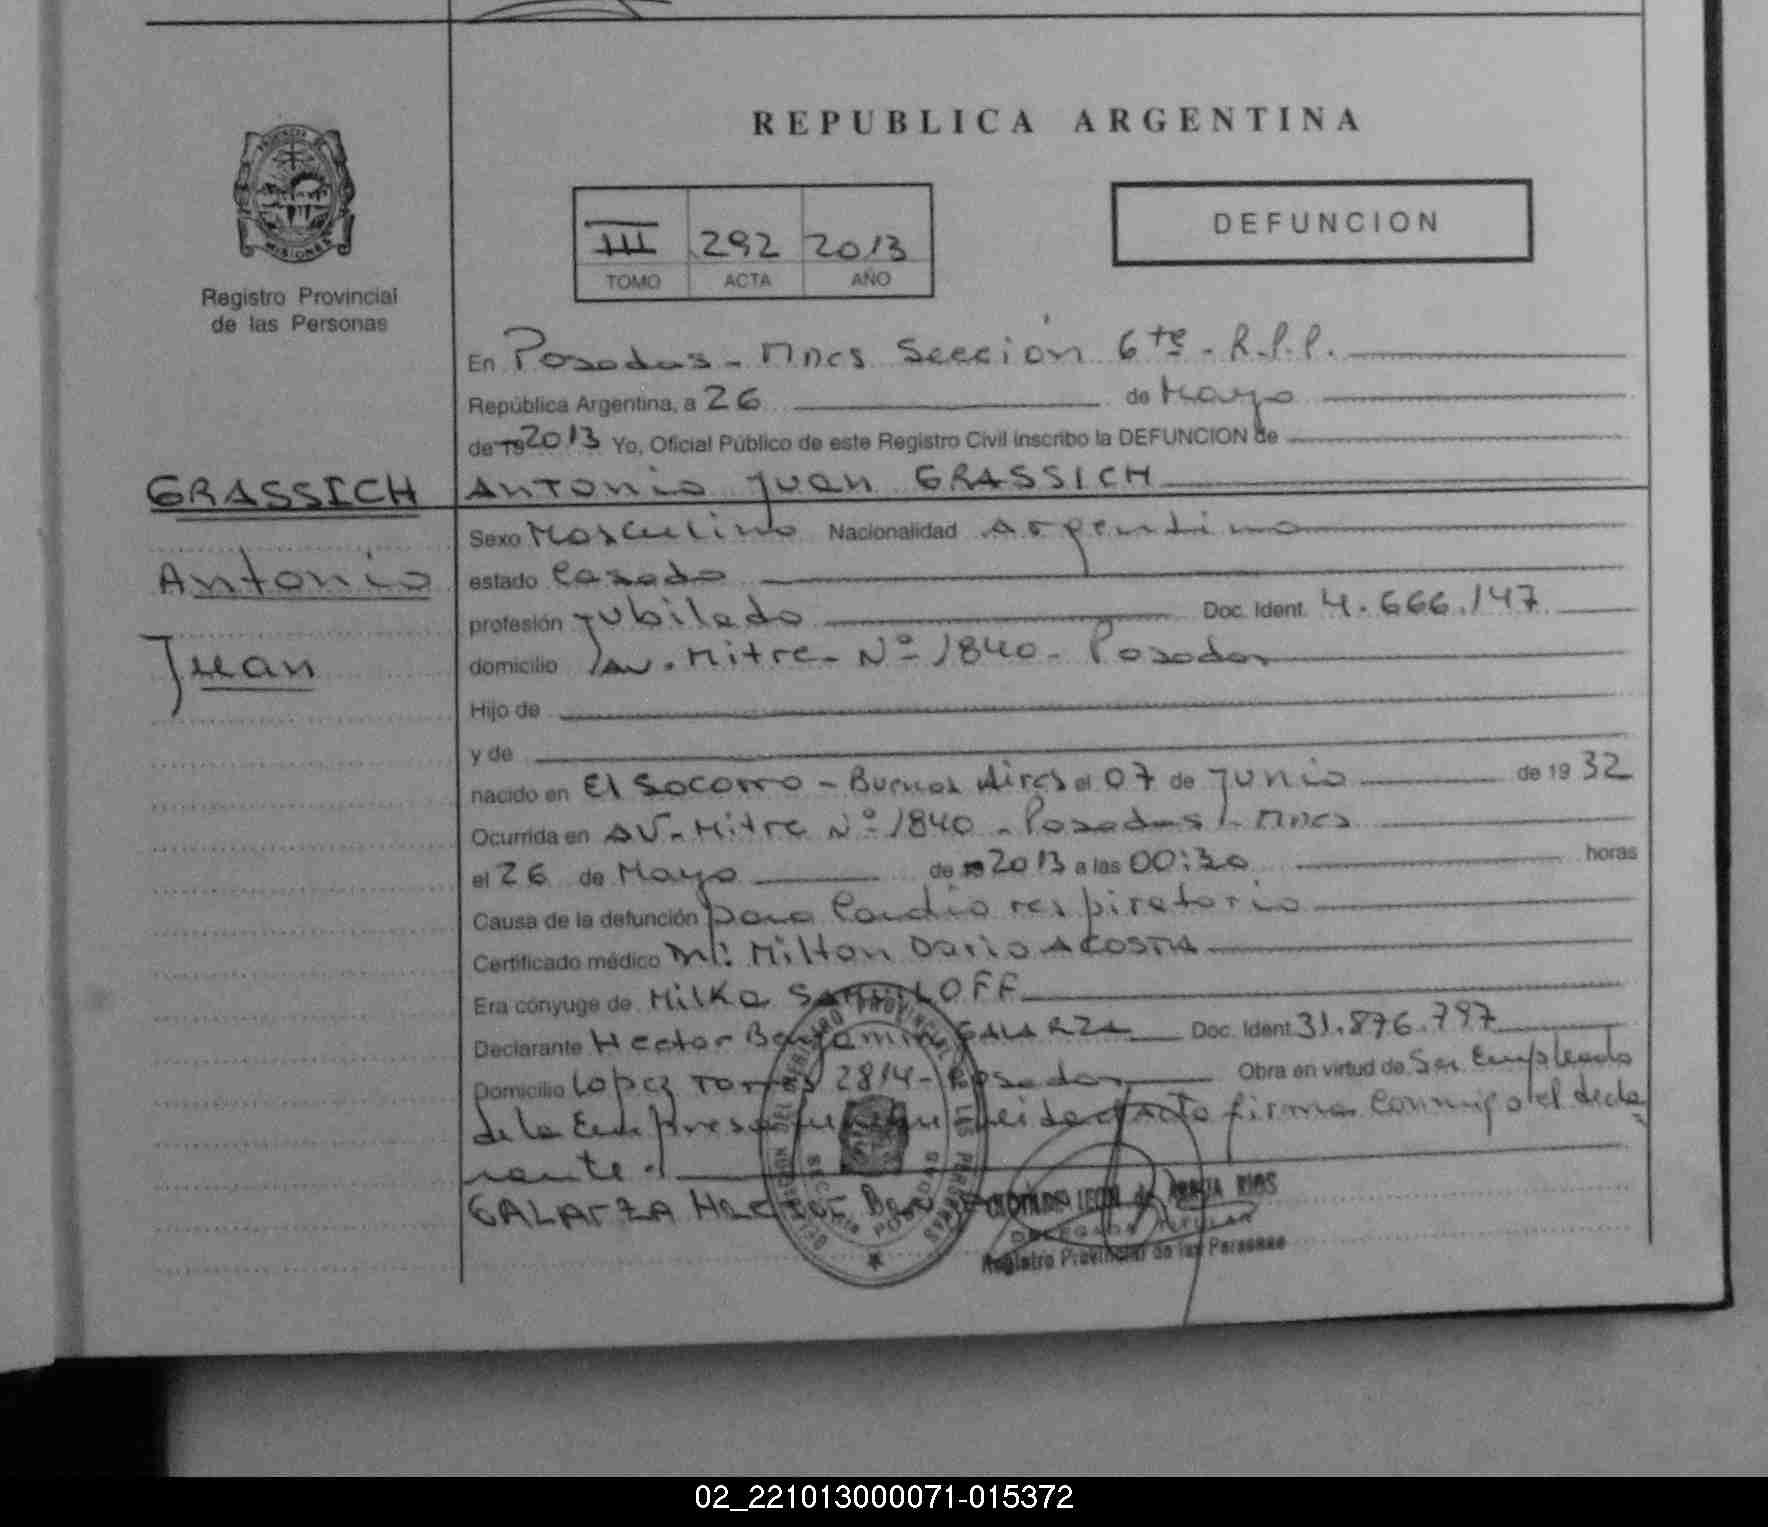 REPUBLICA ARGENTINA
III 292 2013
TOMO ACTA AÑO
DEFUNCION
PROVINCIA DE
MISIONES
Registro Provincial
de las Personas
En Posadas - Mnes Sección 6te - R.P.P.
República Argentina, a 26 de Mayo
de 19 2013 Yo, Oficial Público de este Registro Civil inscribo la DEFUNCION de
GRASSICH
Antonio
Juan
Antonio Juan GRASSICH
Sexo Masculino Nacionalidad Argentino
estado Casado
profesión Jubilado Doc. Ident. 4.666.147
domicilio Av. Mitre - Nº 1840 - Posadas
Hijo de
y de
nacido en El Socorro - Buenos Aires el 07 de Junio de 19 32
Ocurrida en Av. Mitre Nº 1840 - Posadas - Mnes
el 26 de Mayo de 19 2013 a las 00:30 horas
Causa de la defunción paro Cardio respiratorio
Certificado médico Milton Dario ACOSTA
Era cónyuge de Milka
Declarante Hector Benjamin GALARZA Doc. Ident. 31.876.797
Domicilio Lopez Torres 2814 - Posadas Obra en virtud de Ser Empleado
de la Empresa leida el Acto firma Conmigo el decla
rante.
GALARZA Hector
DELEGADO TITULAR
Registro Provincial de las Personas
02_221013000071-015372